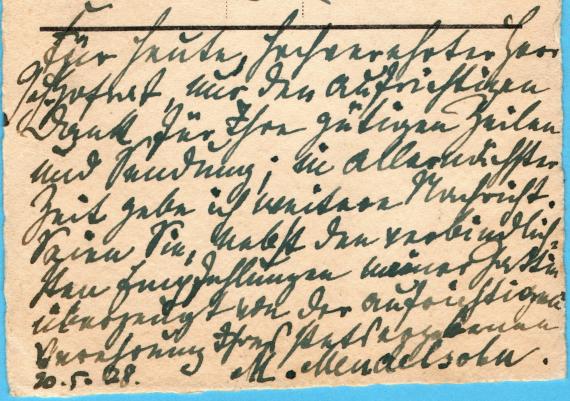 Für heute, hochverehrter Herr
Geh. Hofrat, nur den aufrichtigen
Dank für Ihre gütigen Zeilen
und Sendung; in allernächster
Zeit gebe ich weitere Nachricht.
Seien Sie, nebst den verbindlich-
sten Empfehlungen meiner Gattin
überzeugt von der aufrichtigen
Verehrung Ihres stets ergebenen
20.5.28. M. Mendelsohn.